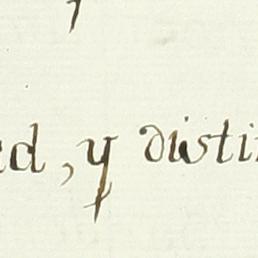 ed, y disti